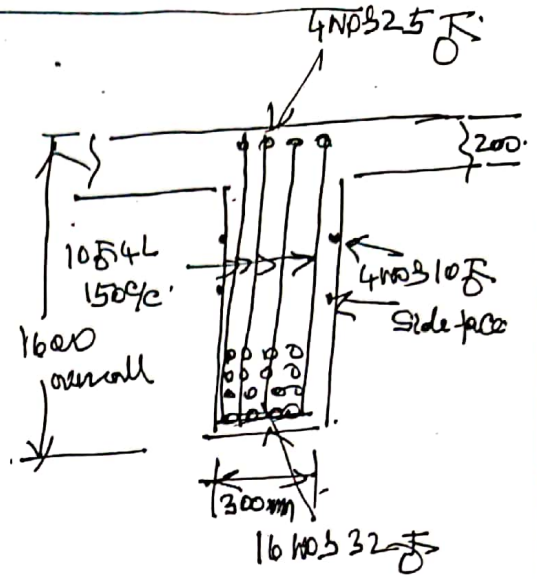 4NOS 25
200.
10 4L
150c/c.
4NOS 10
Side face
1600
overall
300mm
16 NOS 32